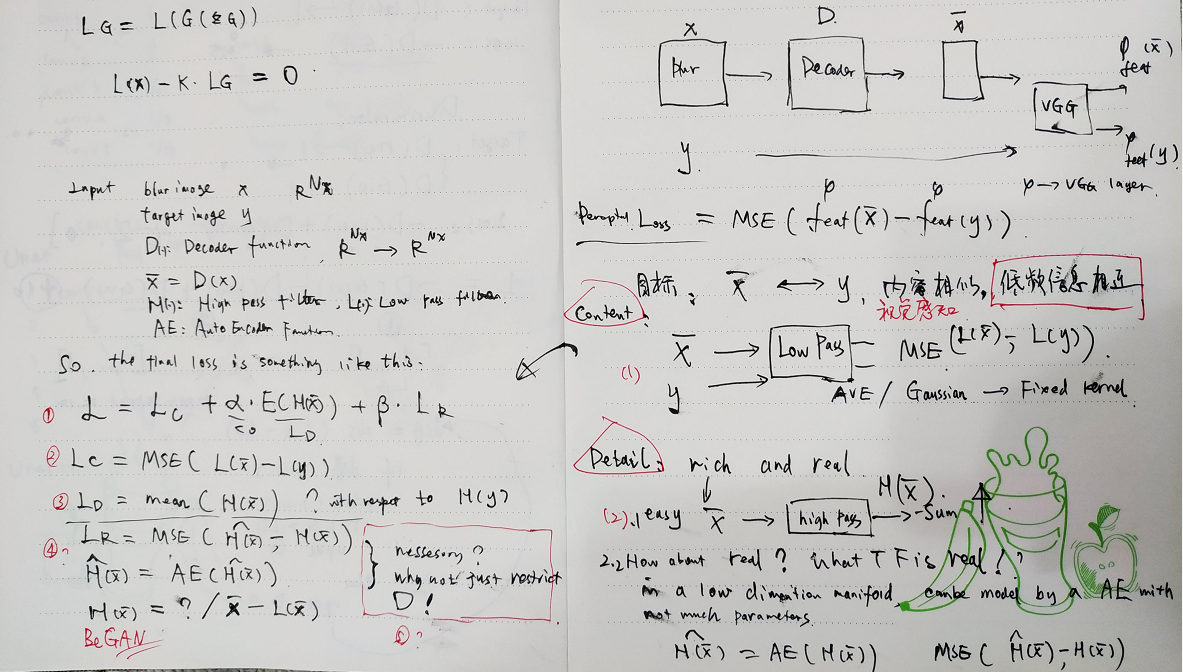 LG = L(G(ZG))
L(x̄) - K · LG = 0
Input blur image x R^Nx
target image y
D(·): Decoder function, R^Nx → R^Nx
x̄ = D(x)
H(·): High pass filter, L(·): Low pass filter.
AE: AutoEncoder Function.
So, the final loss is something like this:
① L = Lc + α · E(H(x̄)) + β · LR
<0 LD
② Lc = MSE( L(x̄) - L(y))
③ LD = mean( H(x̄)) ? with respect to H(y)
④? LR = MSE( Ĥ(x̄) - H(x̄))
Ĥ(x̄) = AE(H(x̄))
H(x̄) = ? / x̄ - L(x̄)
BeGAN
} nessesory?
why not just restrict
D!
⑤?
x D x̄
blur → Decoder → → VGG
φ feat (x̄)
φ feat (y)
y
φ → VGG layer.
φ φ
Loss = MSE( feat(x̄) - feat(y))
目标: x̄ ↔ y, 内容相似, 低频信息相近
视觉感知
Content:
(1) x̄ → Low Pass = MSE(L(x̄) - L(y))
y →
AVE / Gaussian → Fixed kernel
Detail: rich and real
(2).1 easy x̄ → high Pass → H(x̄). - Sum ↑
2.2 How about real? What T F is real!?
in a low dimention manifold, canbe model by a AE with
not much parameters.
Ĥ(x̄) = AE( H(x̄)) MSE( Ĥ(x̄) - H(x̄))